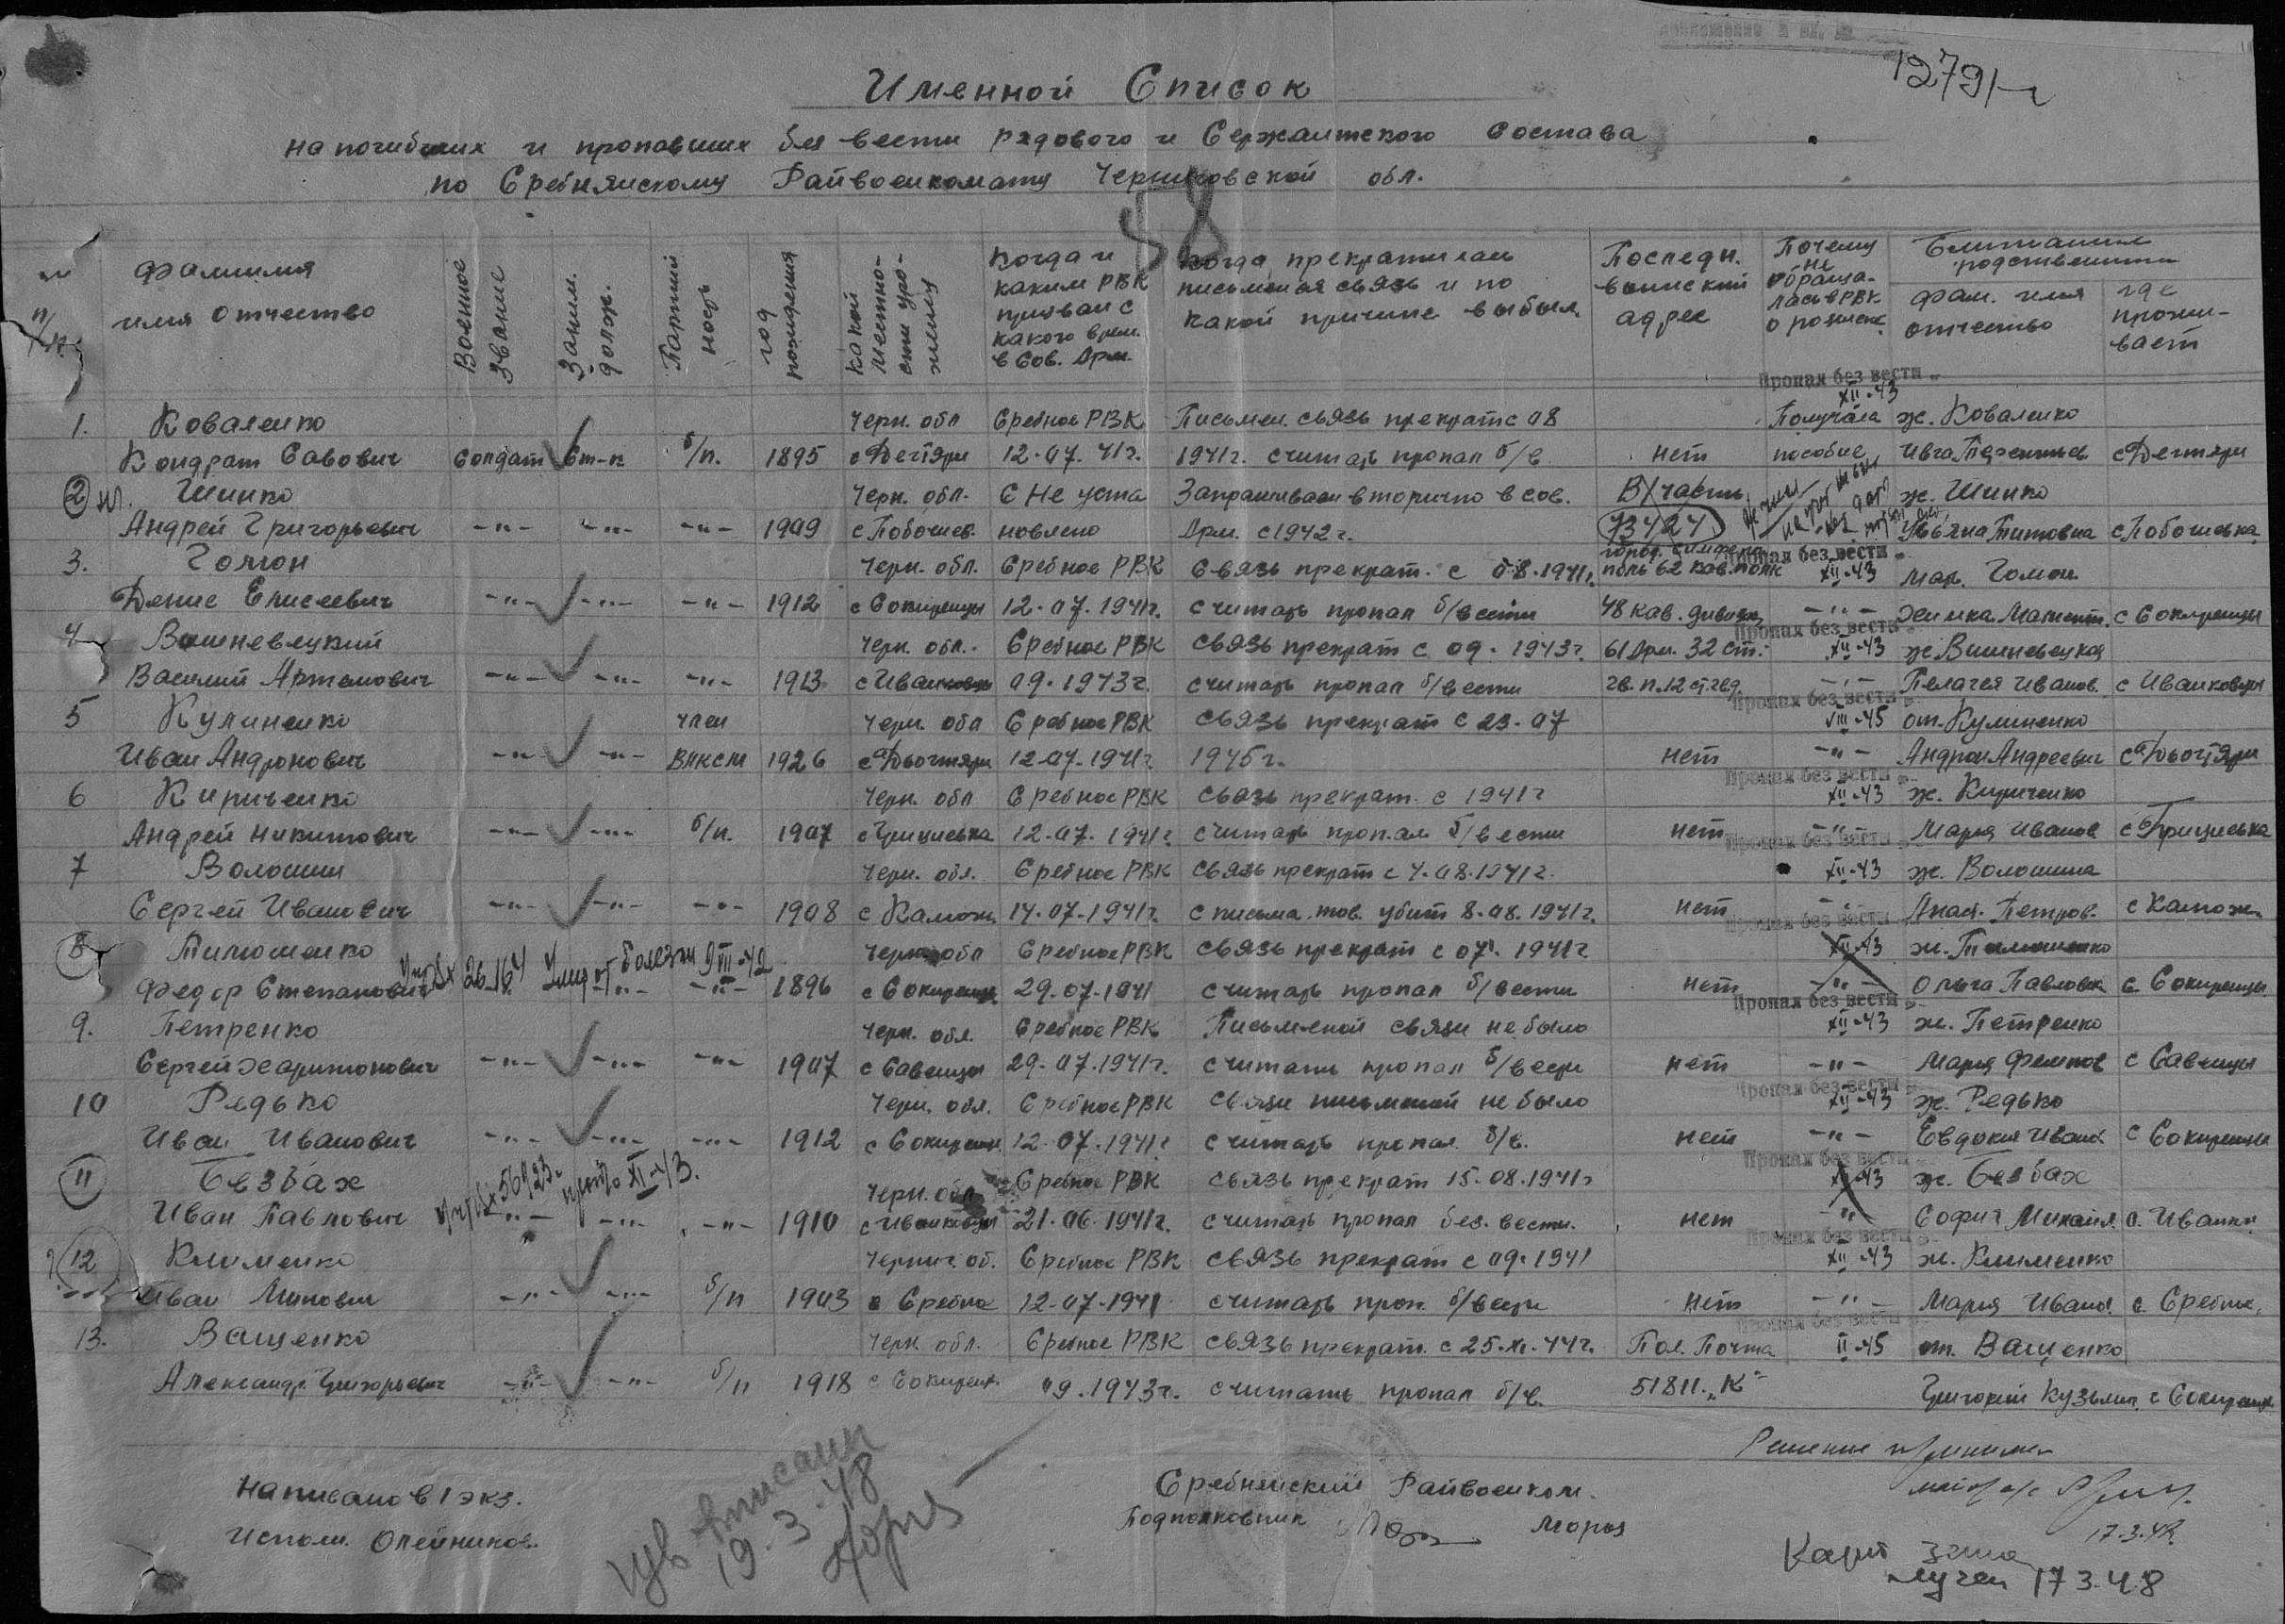 12791-с
Именной Список
на погибших и пропавших без вести рядового и Сержантского состава
по Сребнянскому Райвоенкомату Черниговской обл.
58
п/п Фамилия имя отчество Военное звание Заним. долж. Партийность год рождения какой местности уроженец Когда и каким РВК призван с какого врем. в Сов. Арм. Когда прекратилась письменая связь и по какой причине выбыл Последн. воинский адрес Почему не обращалась в РВК о розыске Ближайшие родственники фам. имя отчество где проживает
Пропал без вести XII-43
1. Коваленко Черн. обл Сребное РВК Письмен. связь прекрат с 08 Получала ж. Коваленко
Кондрат Савович солдат б/п. 1895 с Дегтяри 12.07.41г. 1941г. считать пропал б/в нет пособие с Дегтяри
2 Шинко Черн. обл. С Не уста Запрашиваем вторично в сов. В/часть ж. Шинко
Андрей Григорьевич -"- -"- -"- 1909 новлено Арм. с 1942 г. 73424 Титовна
Пропал без вести XII-43
3. Гомон Черн. обл. Сребное РВК Связь прекрат. с 08.1941г. поль 62 кав. полк Гомон
Денис Елисеевич -"- -"- -"- 1912 с Сокиринцы 12.07.1941г. считать пропал б/вести 48 кав. дивизия -"- с Сокиринцы
Пропал без вести XII-43
4 Вишневецкий Черн. обл. Сребное РВК связь прекрат с 09. 1943г. 61 Арм. 32 ст. ж Вишневецкая
Василий Артемович -"- -"- -"- 1913 с Иванковцы 09.1943г. считать пропал б/вести -"- Пелагея Иванов. с Иванковцы
Пропал без вести VIII-45
5 Кулиненко член Черн. обл Сребное РВК связь прекрат с 23.07 от. Кулиненко
Иван Андронович -"- -"- ВЛКСМ 1926 с Дьогтяри 12.07.1941г. 1945г. нет -"- Андрон Андреевич с Дьогтяри
Пропал без вести XII-43
6 Кириченко Черн. обл Сребное РВК связь прекрат. с 1941г ж. Кириченко
Андрей Никитович -"- -"- б/п. 1907 с Грициевка 12.07.1941г. считать пропал б/вести нет -"- Мария Иванов с Грициевка
Пропал без вести XII-43
7 Волошин Черн. обл. Сребное РВК связь прекрат с 4.08.1941г. ж. Волошина
Сергей Иванович -"- -"- -"- 1908 14.07.1941г. с письма тов. убит 8.08.1941г. нет -"- Анас. Петров.
Пропал без вести XII-43
8 Тимошенко Черн обл Сребное РВК связь прекрат с 07. 1941г ж. Тимошенко
Федор Степанович Умер от болезни 9 VIII-42 -"- 1896 с Сокиринцы 29.07.1941 считать пропал б/вести нет -"- Ольга Павловна с. Сокиринцы
Пропал без вести XII-43
9. Петренко Черн. обл. Сребное РВК Письменой связи небыло ж. Петренко
Сергей Харитонович -"- -"- -"- 1907 с Савинцы 29.07.1941г. считать пропал б/вести нет -"- Мария с Савинцы
Пропал без вести XII-43
10 Редько Черн. обл. Сребное РВК связи письменой не было ж. Редько
Иван Иванович -"- -"- -"- 1912 с Сокиринцы 12.07.1941г. считать пропал б/в. нет -"- Евдокия Иван. с Сокиринцы
Пропал без вести XII-43
11 Безбах Черн. обл Сребное РВК связь прекрат 15.08.1941г ж. Безбах
Иван Павлович 56923 XI-43. -"- -"- -"- 1910 с Иванковцы 21.06.1941г. считать пропал без вести. нет -"- София Михайл. с. Иванк.
Пропал без вести XII-43
12 Клименко Черниг. об. Сребное РВК связь прекрат с 09.1941 ж. Клименко
Иван -"- -"- б/п 1903 с Сребное 12.07.1941 считать проп. б/вести нет -"- Мария Иван. с. Сребное
Пропал без вести II-45
13. Ващенко Черн. обл. Сребное РВК связь прекрат. с 25.XI.44г. Пол. Почта от. Ващенко
Александр Григорьевич -"- -"- б/п 1918 с Сокирен. 09.1943г. считать пропал б/в. 51811 "К" Григорий Кузьмич с Сокиренцы
Написано в 1 экз.
Исполн. Олейников.
19.3.48
Сребнянский Райвоенком.
Подполковник Мороз
17.3.48
17 3.48